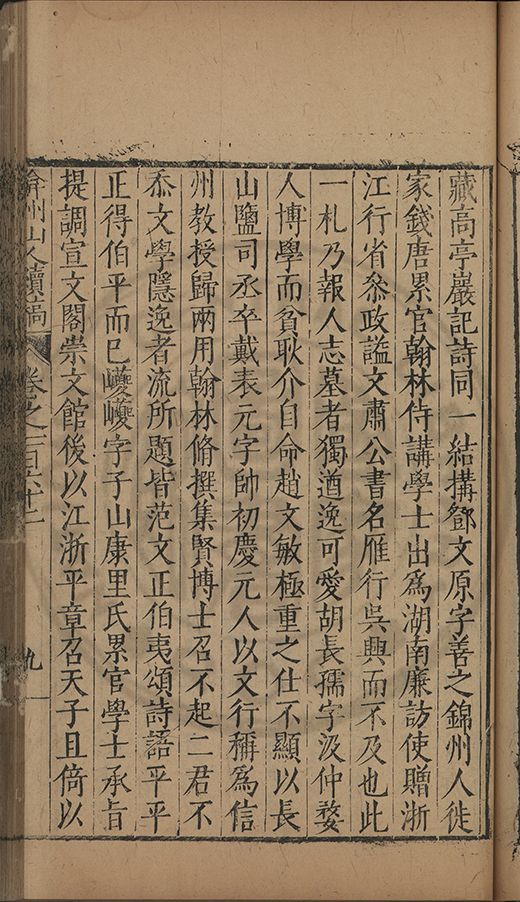 藏高亭巖記詩同一結搆鄧文原字善之錦州人徙
家錢唐累官翰林侍講學士出爲湖南廉訪使贈浙
江行省叅政謚文肅公書名雁行吳興而不及也此
一札乃報人志墓者獨遒逸可愛胡長孺字汲仲婺
人博學而貧耿介自命趙文敏極重之仕不顯以長
山鹽司丞卒戴表元字帥初慶元人以文行稱爲信
州教授歸兩用翰林脩撰集賢博士召不起二君不
忝文學隱逸者流所題皆范文正伯夷頌詩語平平
正得伯平而已巙巙字子山康里氏累官學士承旨
提調宣文閣崇文館後以江浙平章召天子且倚以
弇州山人續稿 卷之一百六十二 九